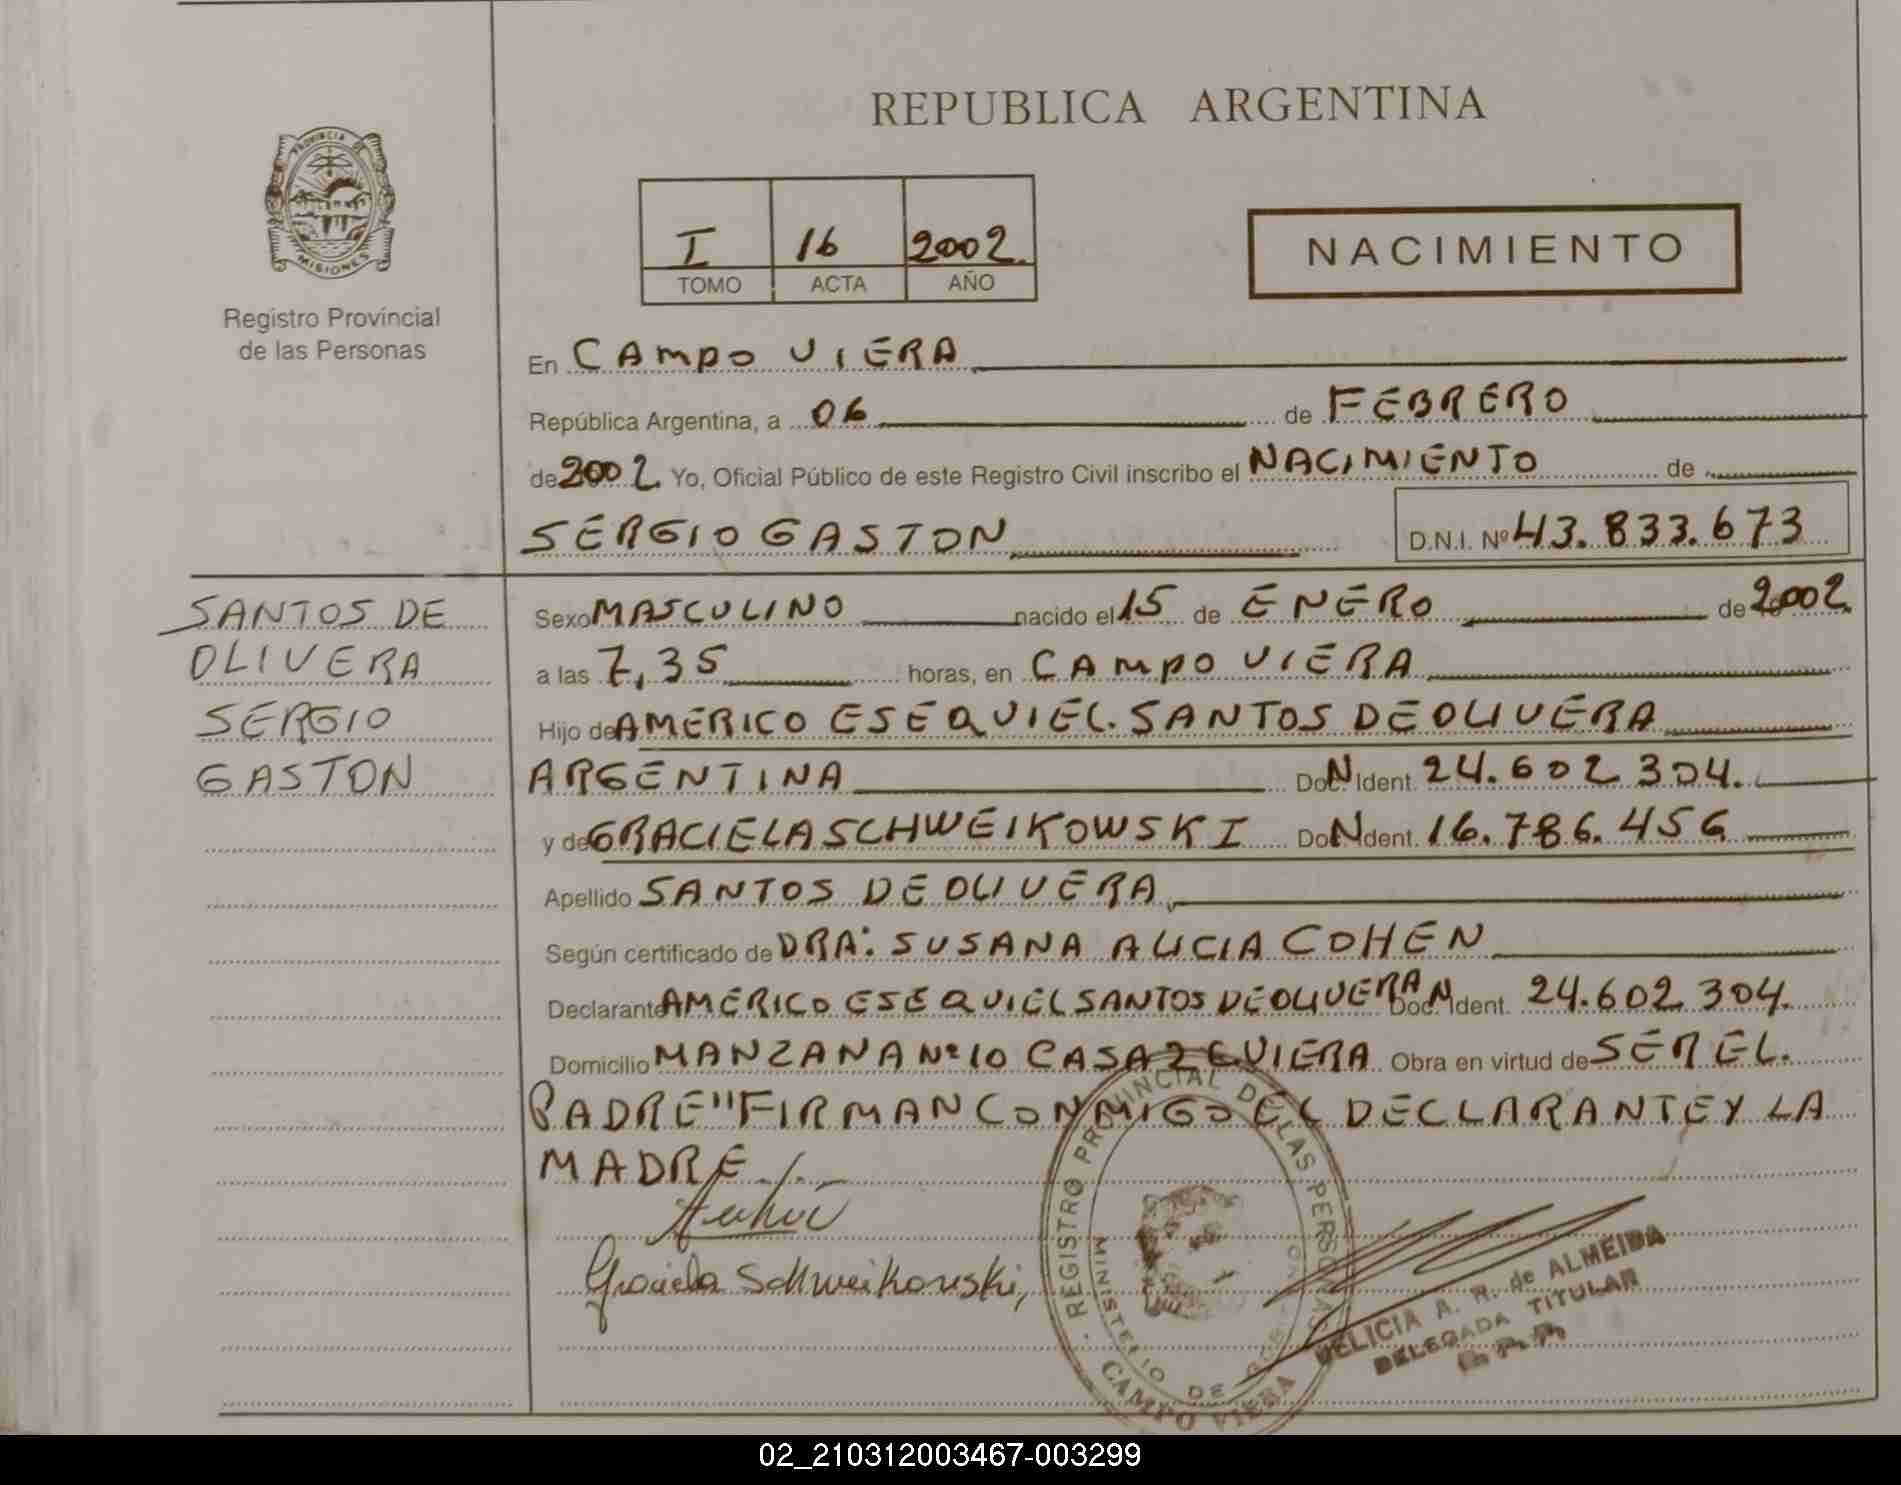 REPUBLICA ARGENTINA
PROVINCIA DE
MISIONES
Registro Provincial
de las Personas
I 16 2002.
TOMO ACTA AÑO
NACIMIENTO
En CAMPO VIERA
República Argentina, a 06 de FEBRERO
de 2002 Yo, Oficial Público de este Registro Civil inscribo el NACIMIENTO de
SERGIO GASTON D.N.I. Nº 43.833.673
SANTOS DE
OLIVERA
SERGIO
GASTON
Sexo MASCULINO nacido el 15 de ENERO de 2002.
a las 7,35 horas, en CAMPO VIERA
Hijo de AMERICO ESEQUIEL SANTOS DE OLIVERA
ARGENTINA Doc. N Ident. 24.602.304.
y de GRACIELA SCHWEIKOWSKI Doc. N Ident. 16.786.456
Apellido SANTOS DE OLIVERA
Según certificado de DRA: SUSANA ALICIA COHEN
Declarante AMERICO ESEQUIEL SANTOS DE OLIVERA Doc. N Ident. 24.602.304.
Domicilio MANZANA Nº 10 CASA 2 C VIERA Obra en virtud de SER EL
PADRE" FIRMAN CONMIGO EL DECLARANTE Y LA
MADRE
Graciela Schweikowski,
REGISTRO PROVINCIAL DE LAS PERSONAS
MINISTERIO DE
CAMPO VIERA
DELICIA A. R. de ALMEIDA
DELEGADA TITULAR
02_210312003467-003299